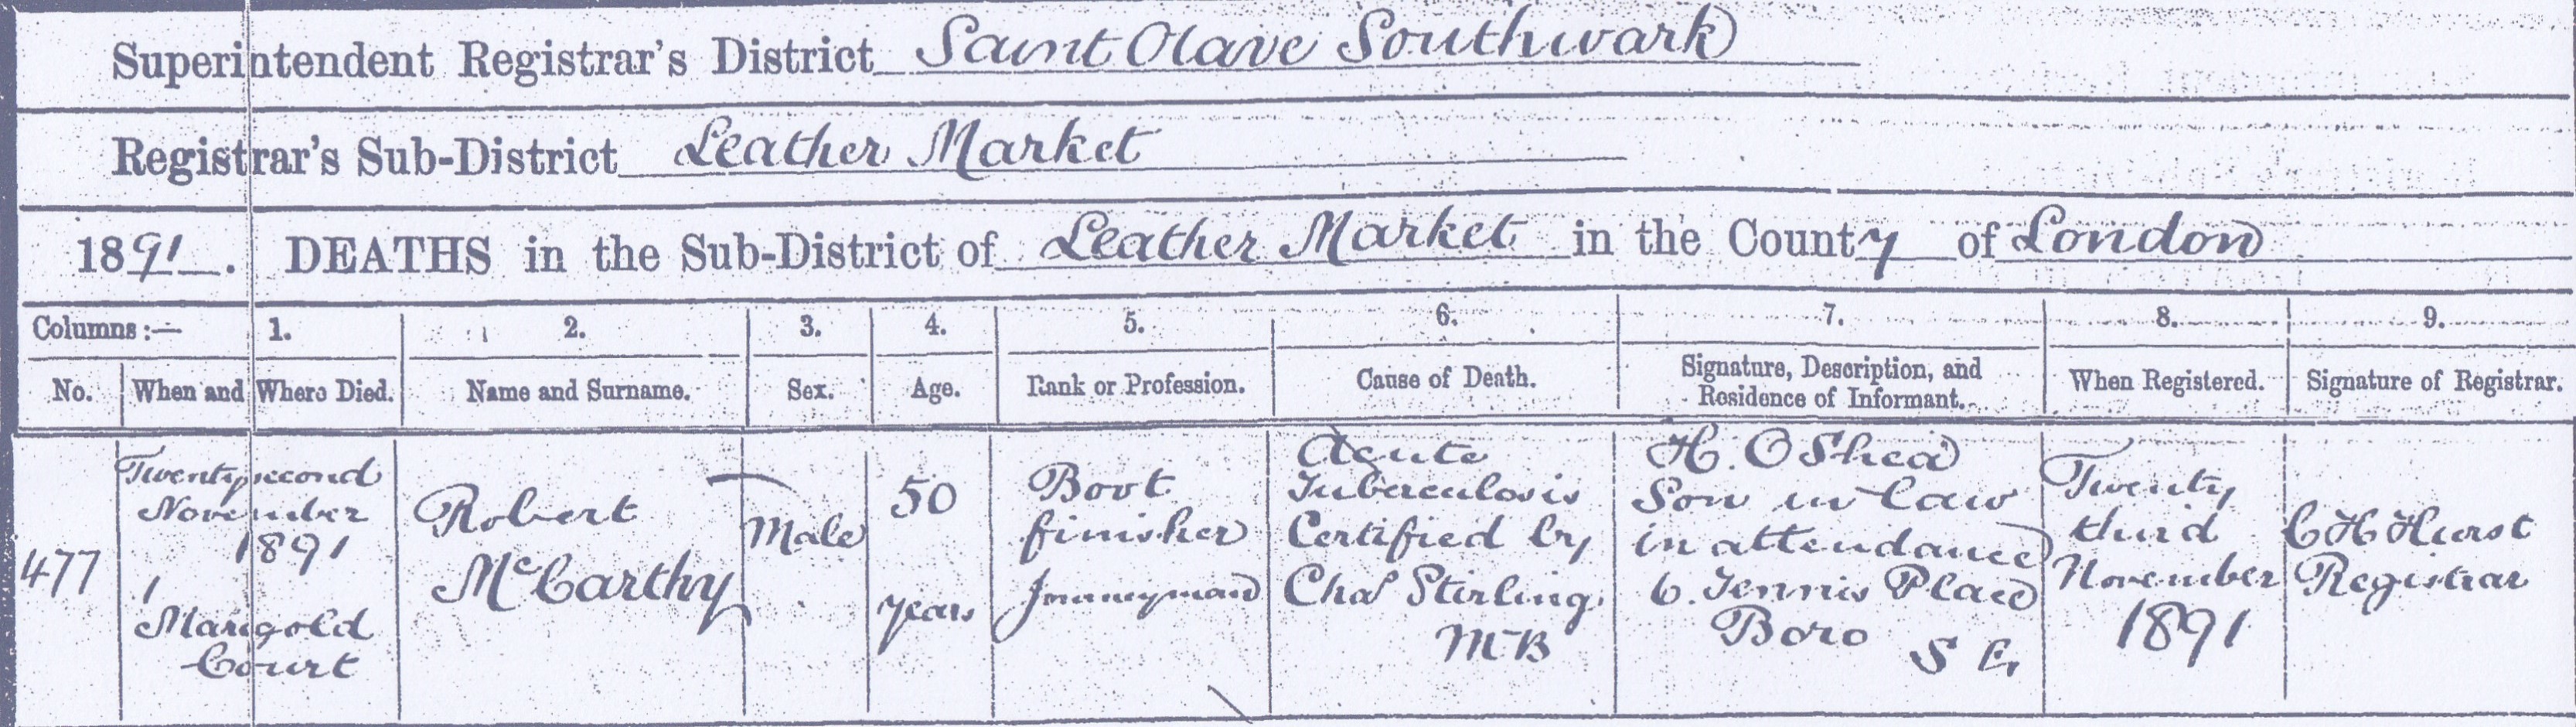 Superintendent Registrar's District Saint Olave Southwark
Registrar's Sub-District Leather Market
1891. DEATHS in the Sub-District of Leather Market in the County of London
Columns:— 1. 2. 3. 4. 5. 6. 7. 8. 9.
No. When and Where Died. Name and Surname. Sex. Age. Rank or Profession. Cause of Death. Signature, Description, and Residence of Informant. When Registered. Signature of Registrar.
477
Twenty second
November
1891
1
Marigold
Court
Robert
McCarthy
Male
50
years
Boot
finisher
Journeyman
Acute
Tuberculosis
Certified by
Chas Stirling
MB
H. O Shea
Son in law
in attendance
6. Tennis Place
Boro S E
Twenty
third
November
1891
C H Hurst
Registrar